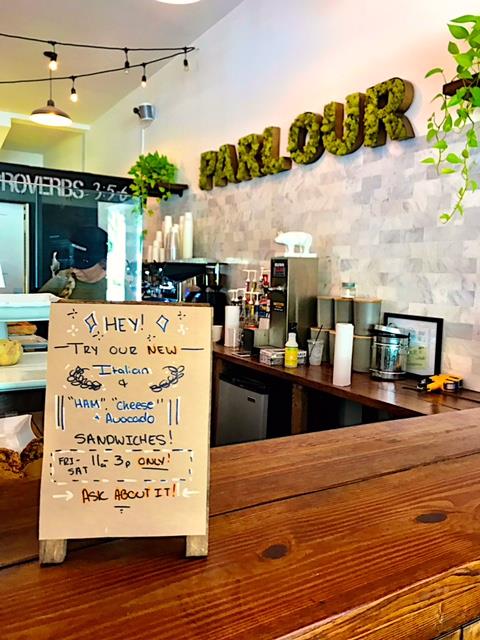 PARLOUR
ROVERBS 3:5-6
HEY!
TRY OUR NEW
Italian
&
"HAM", "Cheese"
+ Avocado
SANDWICHES!
FRI-
SAT 11a- 3p ONLY!
ASK ABOUT IT!